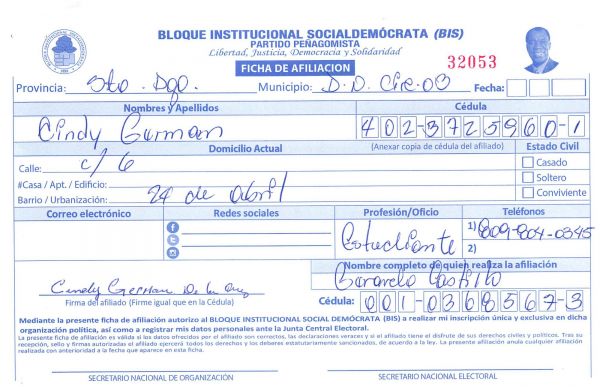 BLOQUE INSTITUCIONAL SOCIALDEMÓCRATA (BIS)
PARTIDO PEÑAGOMISTA
Libertad, Justicia, Democracia y Solidaridad
FICHA DE AFILIACION
32053
Provincia: Sto. Dgo. Municipio: D.D. Circ. 03 Fecha:
Nombres y Apellidos
Cédula
Cindy Gurman
402-3725960-1
(Anexar copia de cédula del afiliado)
Domicilio Actual
Estado Civil
Calle: c/ 6
Casado
#Casa / Apt. / Edificio:
Soltero
Barrio / Urbanización: 24 de abril
Conviviente
Correo electrónico
Redes sociales
Profesión/Oficio
Teléfonos
Estudiante
1) 809-804-0345
2)
Nombre completo de quien realiza la afiliación
Castillo
Cindy German De la Cruz
Firma del afiliado (Firme igual que en la Cédula)
Cédula: 001-0368567-3
Mediante la presente ficha de afiliación autorizo al BLOQUE INSTITUCIONAL SOCIAL DEMÓCRATA (BIS) a realizar mi inscripción única y exclusiva en dicha
organización política, así como a registrar mis datos personales ante la Junta Central Electoral.
La presente ficha de afiliación es válida si los datos ofrecidos por el afiliado son correctos, las declaraciones veraces y si el afiliado tiene el disfrute de sus derechos civiles y políticos. Tras su
recepción, sello y firmas autorizadas el afiliado ejercerá todos los derechos y los deberes estatutariamente sancionados, de acuerdo a la ley. La presente afiliación anula cualquier afiliación
realizada con anterioridad a la fecha que aparece en esta ficha.
SECRETARIO NACIONAL DE ORGANIZACIÓN
SECRETARIO NACIONAL ELECTORAL